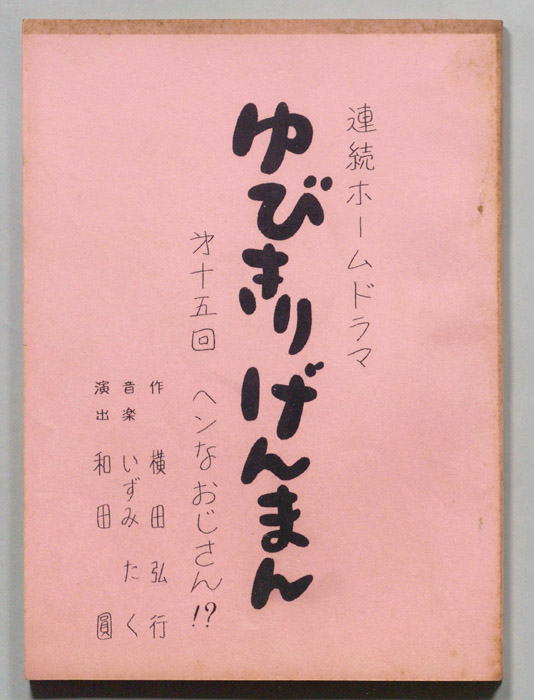 連続ホームドラマ
ゆびきりげんまん
第十五回 ヘンなおじさん!?
作 横田弘行
音楽 いずみたく
演出 和田 圓